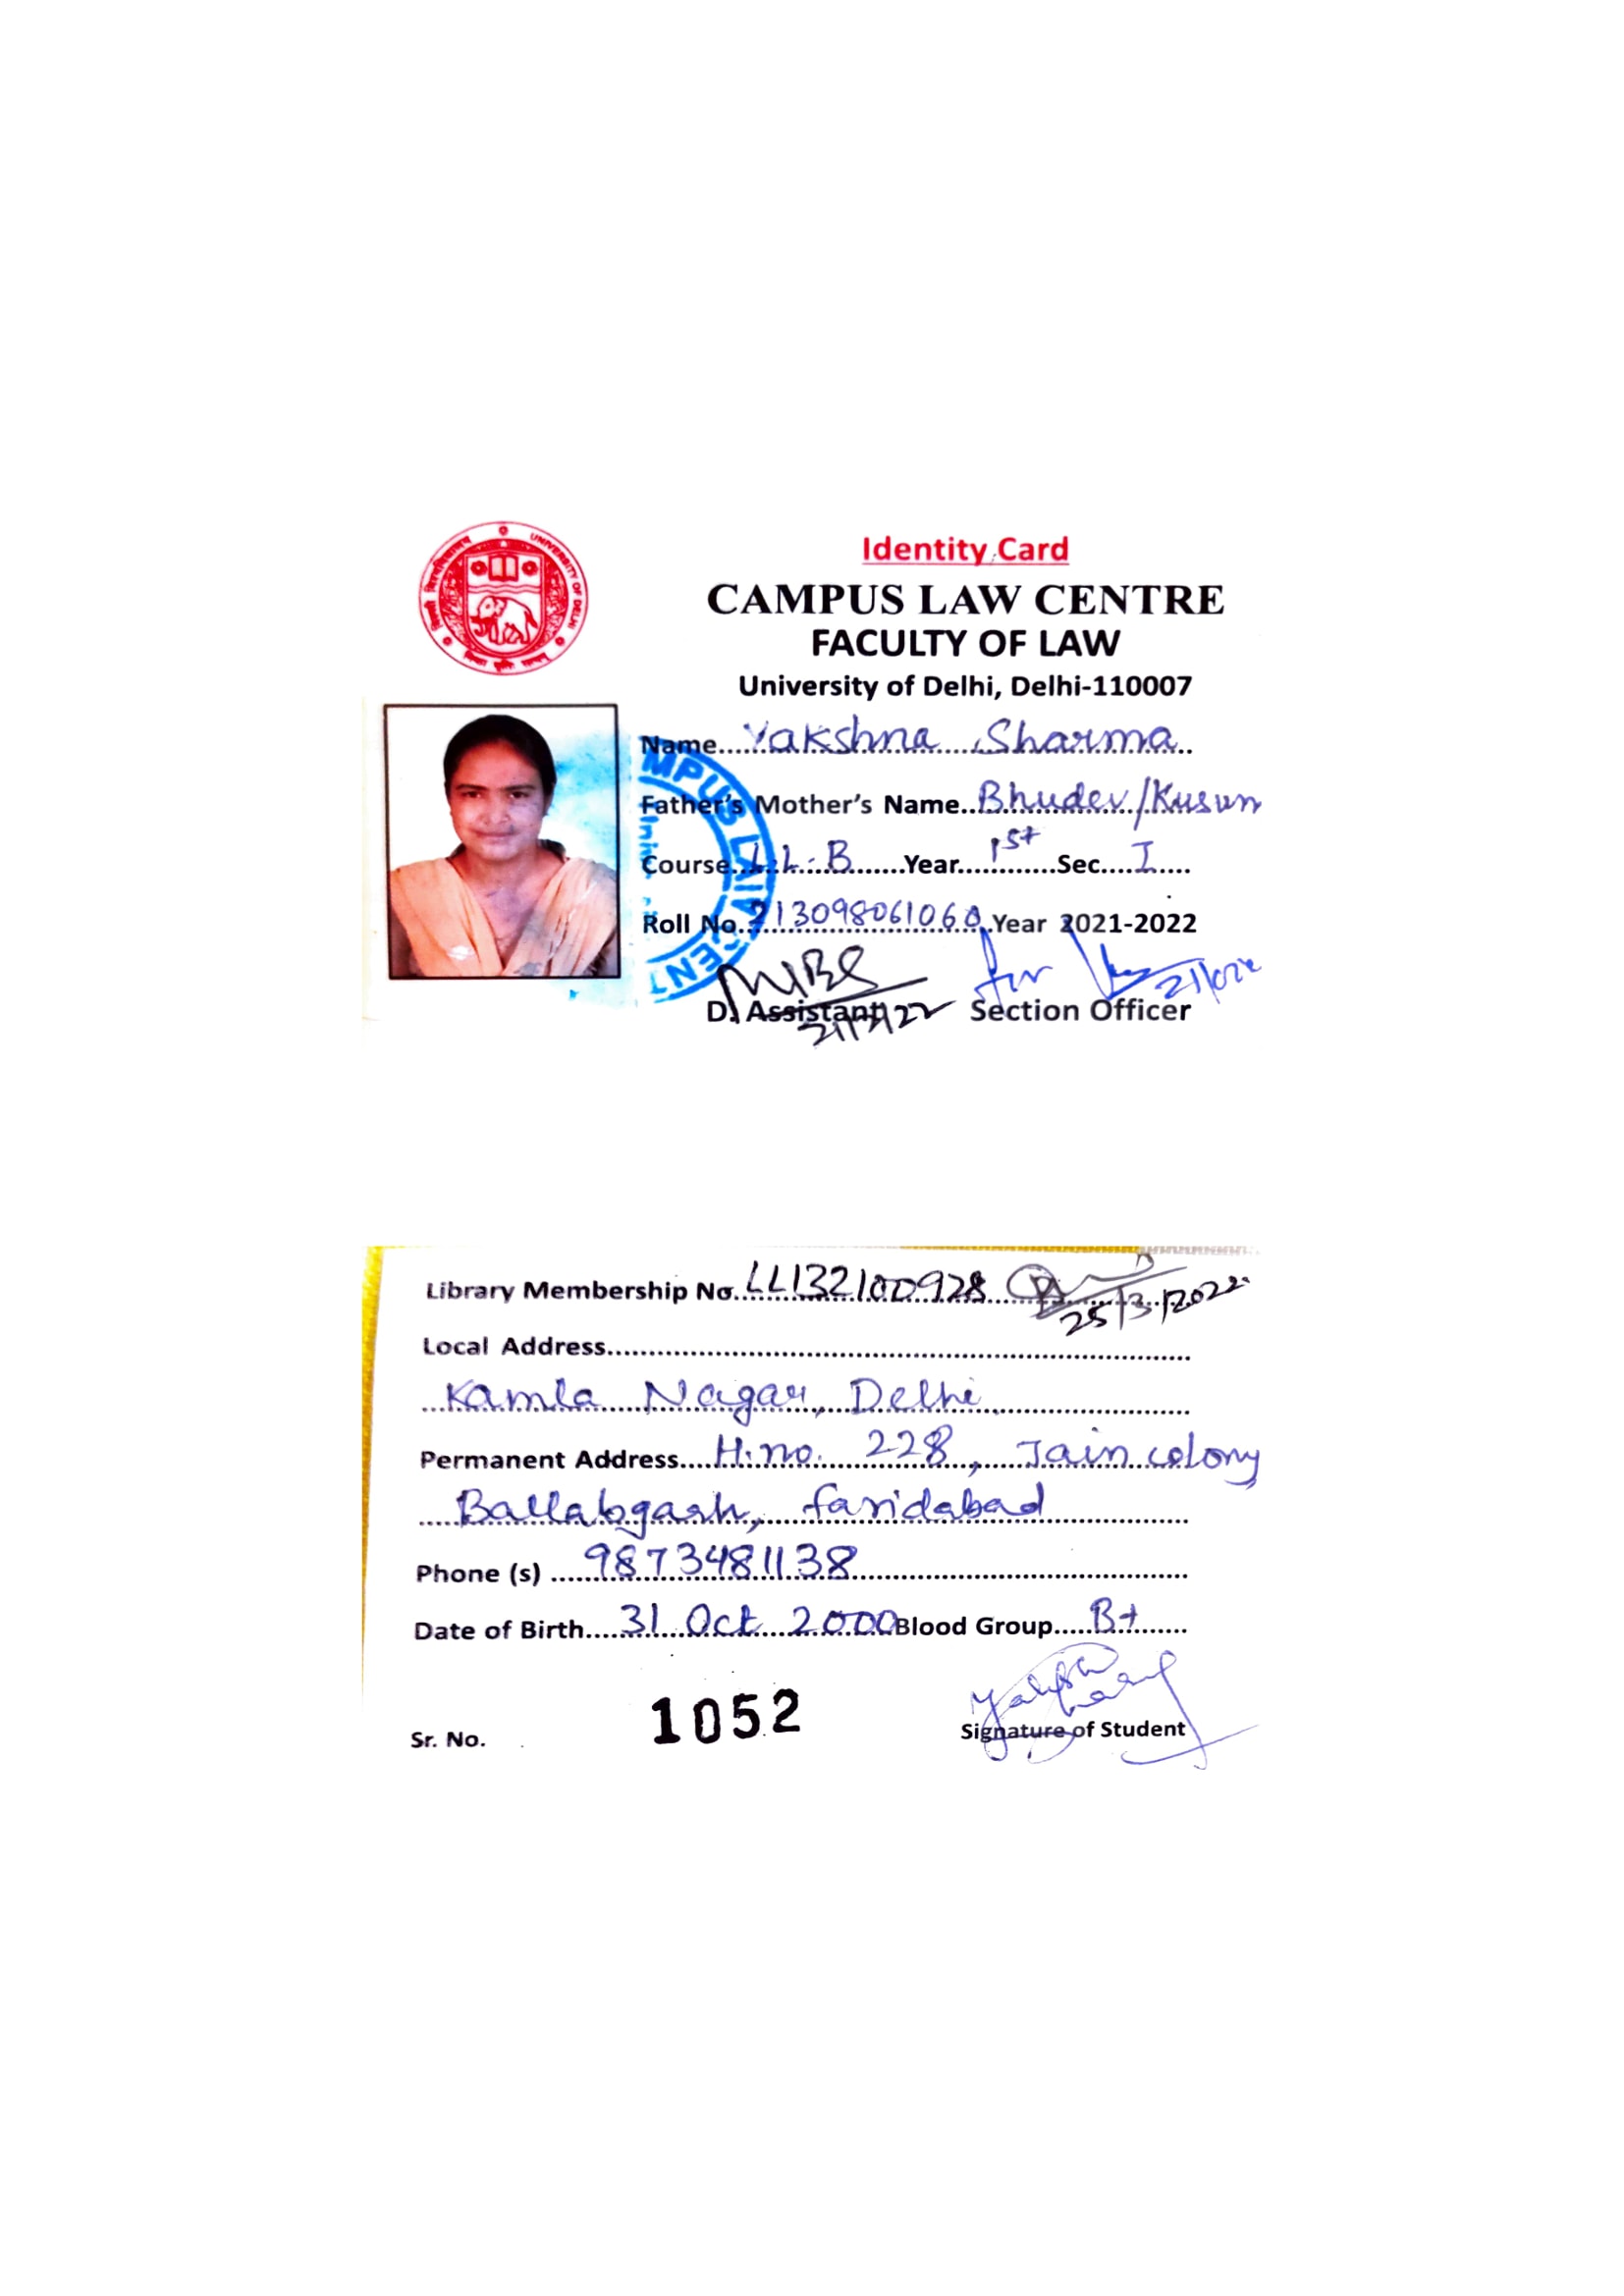 Identity Card
CAMPUS LAW CENTRE
FACULTY OF LAW
University of Delhi, Delhi-110007
UNIVERSITY OF DELHI
Name....Yakshna Sharma
Father's Mother's Name..Bhudev/Kusum
Course..L.L.B......Year....1st......Sec....I.....
Roll No.213098061060 Year 2021-2022
D. Assistant Section Officer
21/3/22
Library Membership No.LL132100928
25/3/2022
Local Address
Kamla Nagar, Delhi
Permanent Address....H.no. 228, Jain colony
Ballabgarh, faridabad
Phone (s) ....9873481138
Date of Birth....31 Oct 2000 Blood Group....B+
Sr. No. 1052 Signature of Student